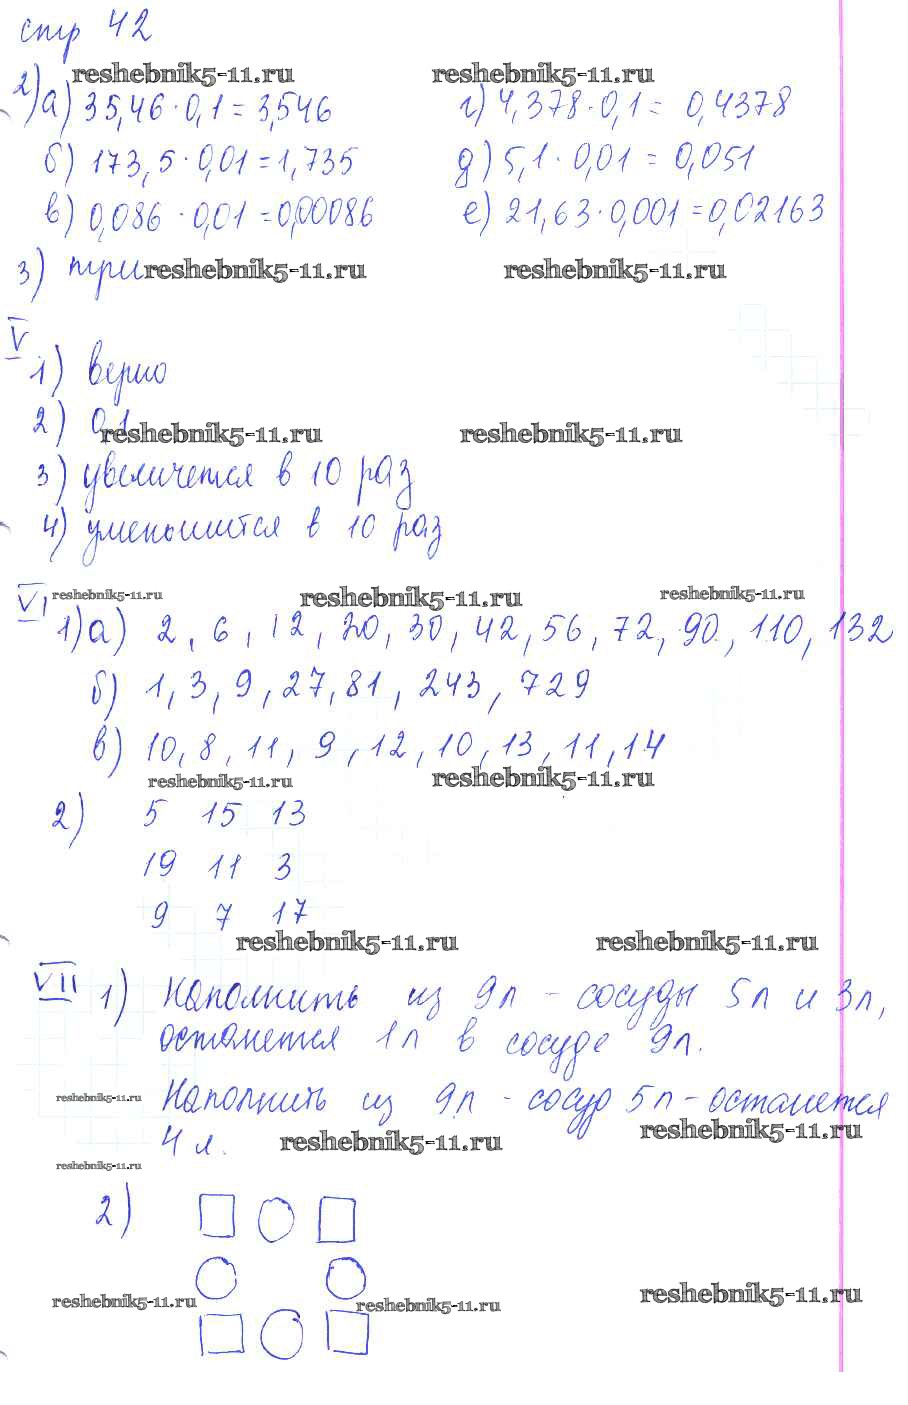 стр 42
reshebnik5-11.ru reshebnik5-11.ru
2) а) 35,46 · 0,1 = 3,546 г) 4,378 · 0,1 = 0,4378
б) 173,5 · 0,01 = 1,735 д) 5,1 · 0,01 = 0,051
в) 0,086 · 0,01 = 0,00086 е) 21,63 · 0,001 = 0,02163
3) три reshebnik5-11.ru reshebnik5-11.ru
V
1) верно
2) 0,1
reshebnik5-11.ru reshebnik5-11.ru
3) увеличется в 10 раз
4) уменьшится в 10 раз
VI reshebnik5-11.ru reshebnik5-11.ru reshebnik5-11.ru
1) а) 2, 6, 12, 20, 30, 42, 56, 72, 90, 110, 132
б) 1, 3, 9, 27, 81, 243, 729
в) 10, 8, 11, 9, 12, 10, 13, 11, 14
reshebnik5-11.ru reshebnik5-11.ru
2) 5 15 13
19 11 3
9 7 17
reshebnik5-11.ru reshebnik5-11.ru
VII 1) Наполнить из 9л - сосуды 5л и 3л,
останется 1л в сосуде 9л.
reshebnik5-11.ru Наполнить из 9л - сосуд 5л - останется
4 л. reshebnik5-11.ru reshebnik5-11.ru
reshebnik5-11.ru
2)
reshebnik5-11.ru reshebnik5-11.ru reshebnik5-11.ru